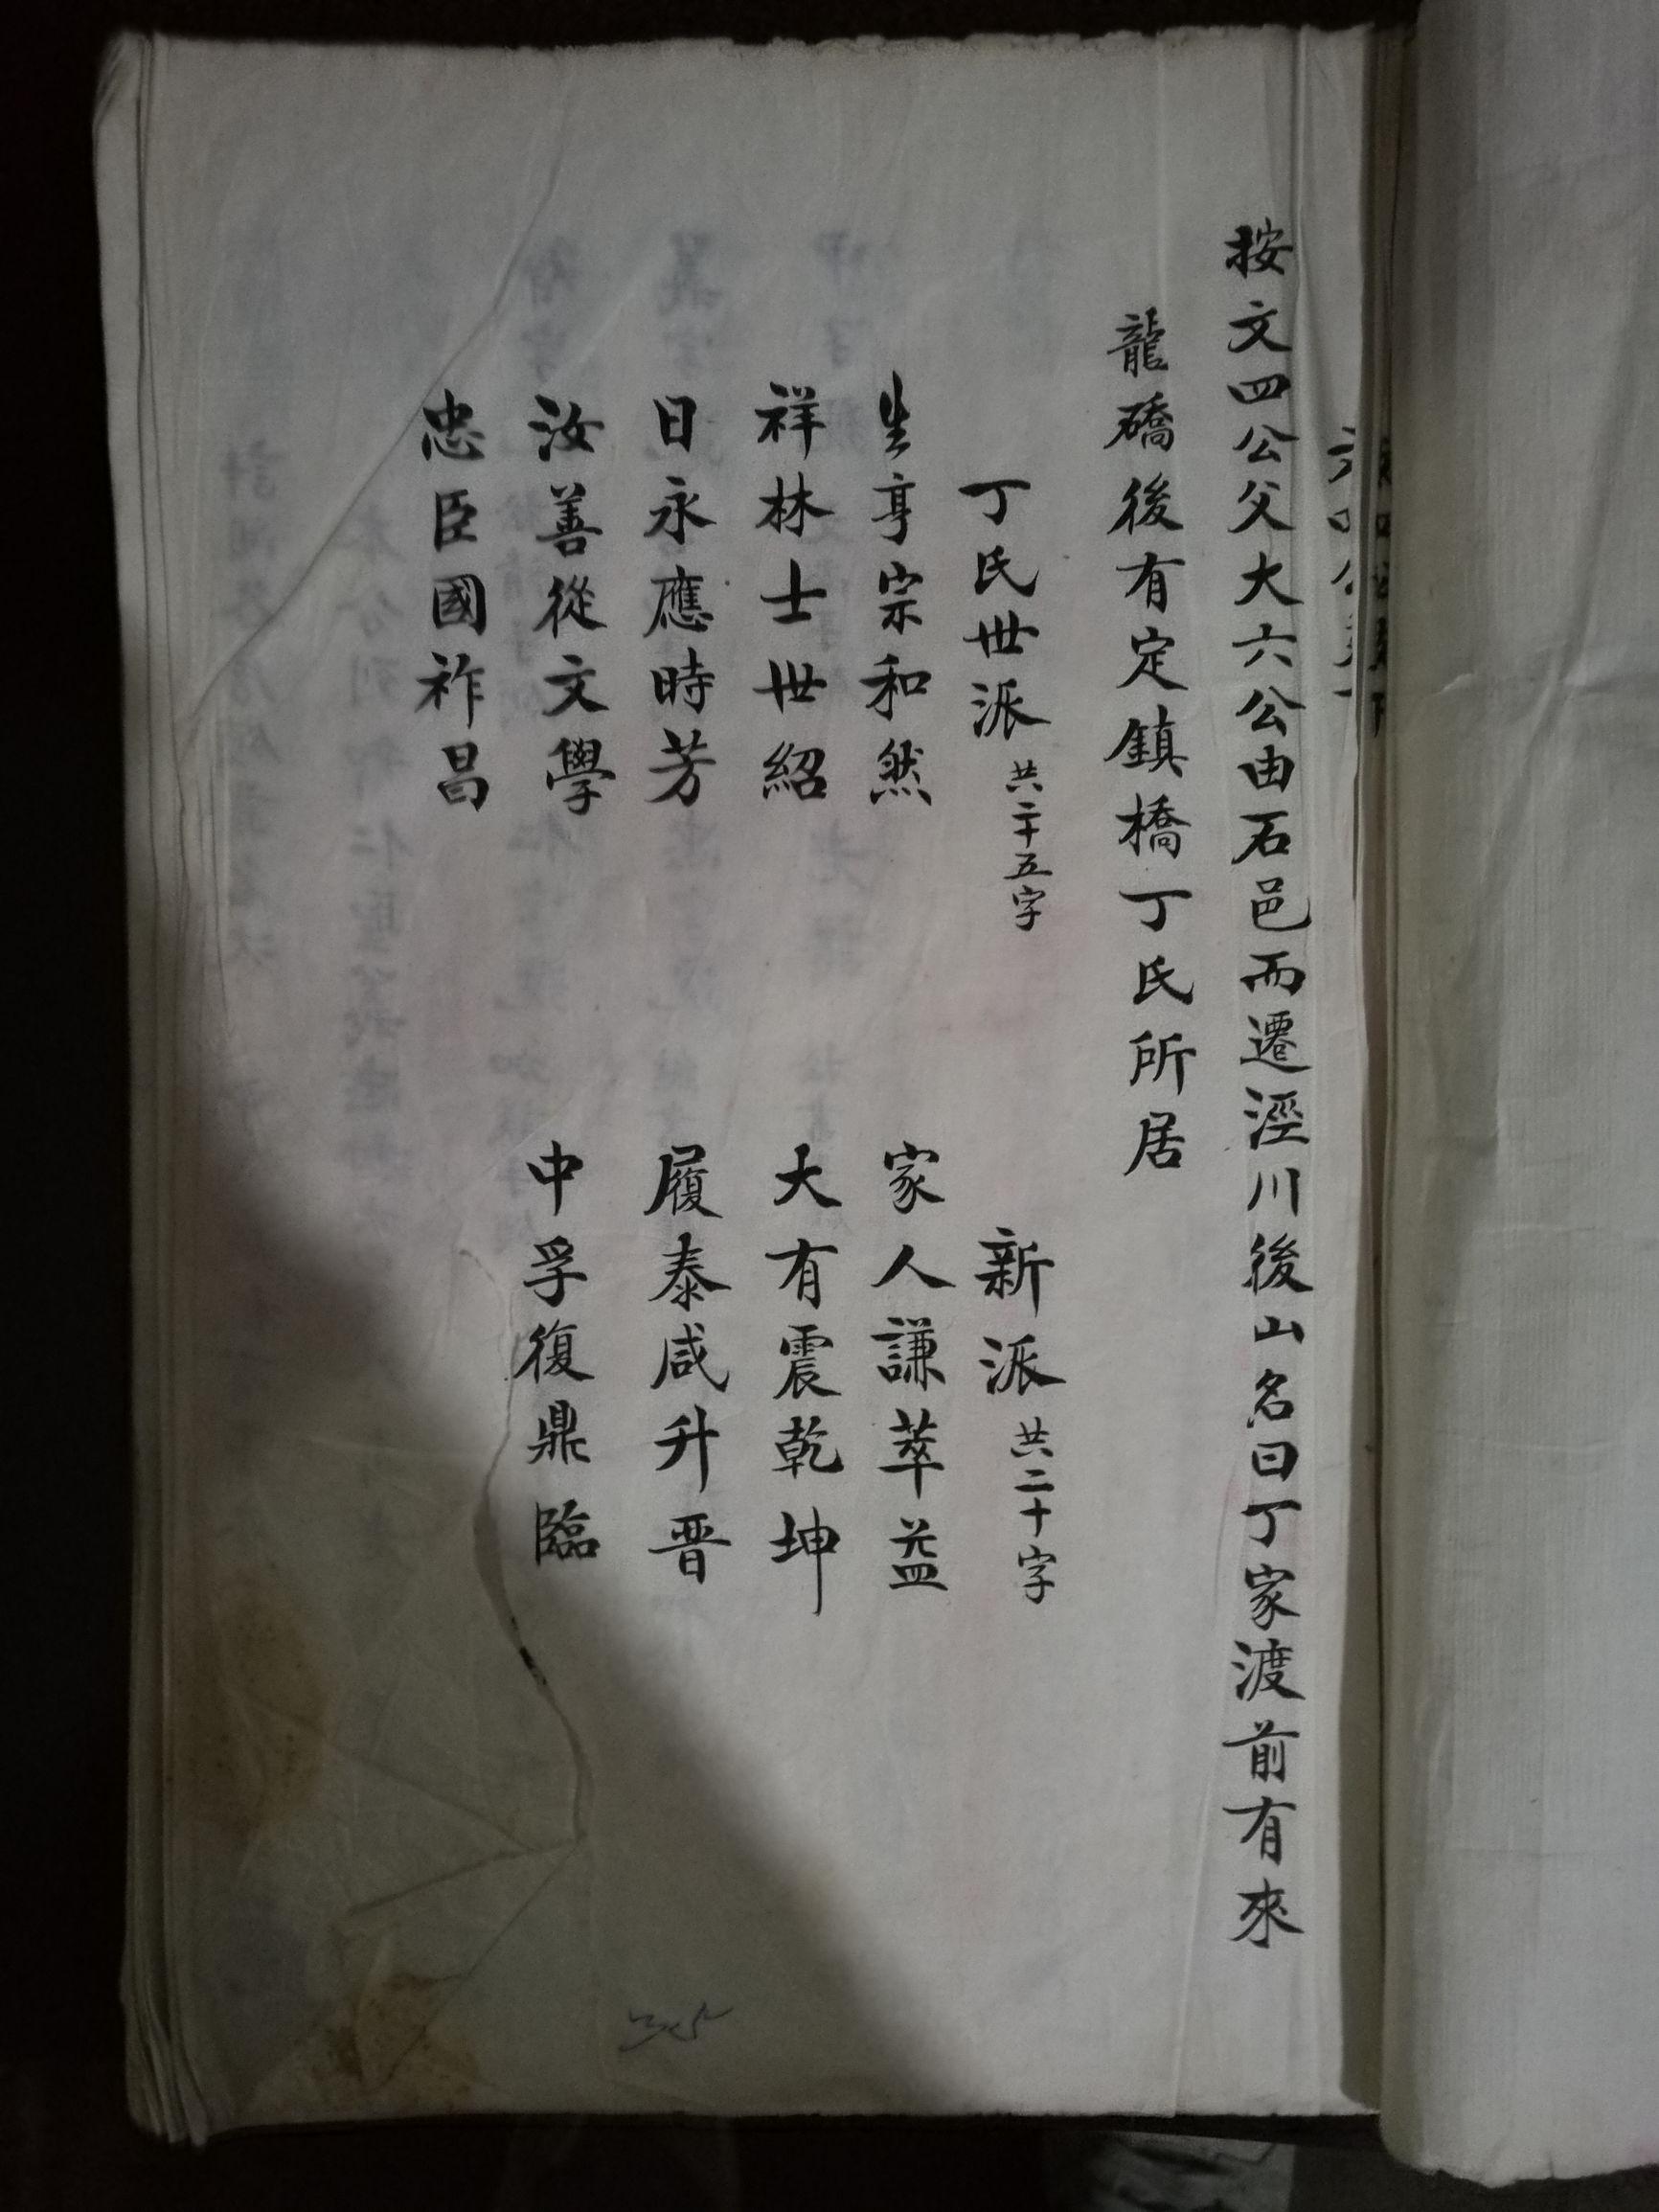 按文四公父大六公由石邑而遷涇川後山名曰丁家渡前有來
龍礄後有定鎮橋丁氏所居
丁氏世派 共二十五字
生亨宗和然
祥林士世紹
日永應時芳
汝善從文學
忠臣國祚昌
新派 共二十字
家人謙萃益
大有震乾坤
履泰咸升晋
中孚復鼎臨
35